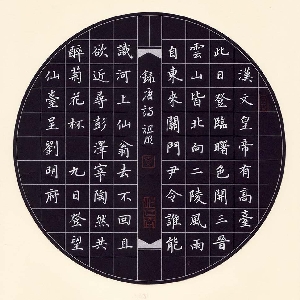 漢文皇帝有高臺
此日登臨曙色開三晉
雲山皆北向二陵風雨
自東來關門尹令誰能
錄唐詩
識河上仙翁去不回且
欲近尋彭澤宰陶然共
醉菊花杯 九日登望
仙臺呈劉明府